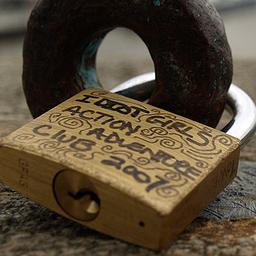 IDIOT GIRLS
ACTION
ADVENTURE
CLUB 2007